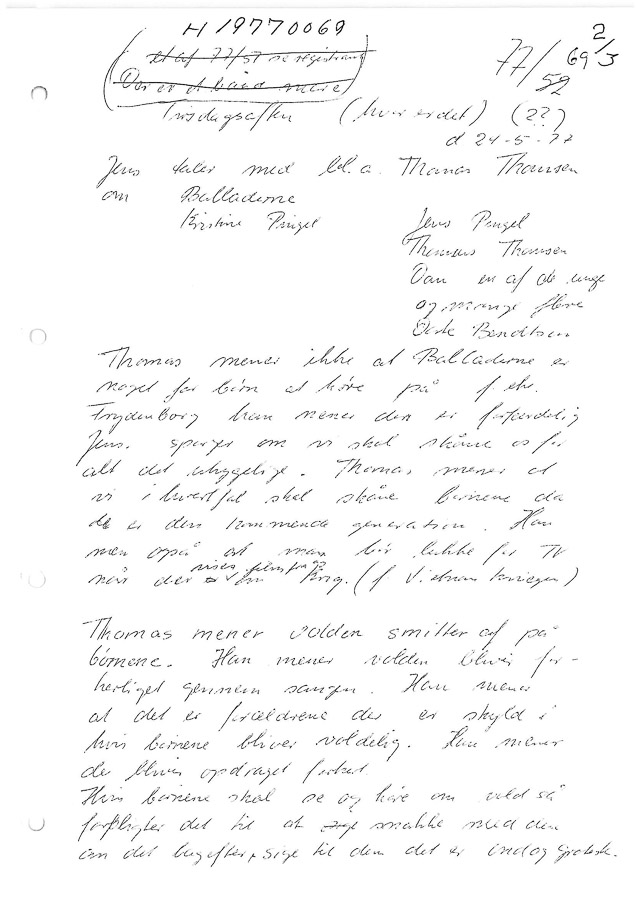 H 19770069
2/3
77/59 69
et af 77/57 se registrant
Der er et bånd mere
Tirsdagsaften (hvor er det) (??)
d 24-5-77
Jens taler med bl.a. Thomas Thomsen
om Balladerne
Kirstine Pingel
Jens Pingel
Thomas Thomsen
Dan en af de unge
og mange flere
Bendtsen
Thomas mener ikke at Balladerne er
noget for børn at høre på f. eks.
Frydenborg han mener den er forfærdelig
Jens. spørger om vi skal skåne os for
alt det uhyggelige. Thomas mener at
vi i hvertfal skal skåne børnene da
de er den kommende generation. Han
men også at man bør lukke for TV
når der vises film fra Krig. (f Vietnam krigen)
Thomas mener volden smitter af på
børnene. Han mener volden bliver for-
herliget gennem sangen. Han mener
at det er forældrene der er skyld i
hvis børnene bliver voldelig. Han mener
de bliver opdraget forkert
Hvis børnene skal se og høre om vold så
forpligter det til at snakke med dem
om det bagefter, sige til dem det er